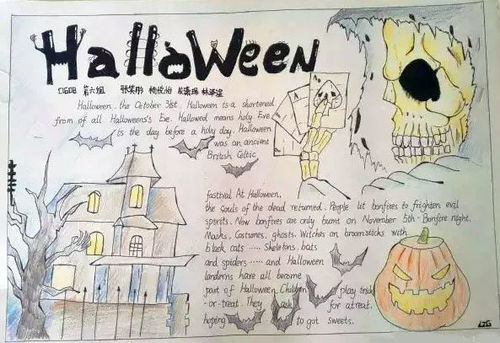 Halloween
第六组
Halloween, the October 31st. Halloween is a shortened
from of all Halloweens's Eve. Hallowed means holy Eve
is the day before a holy day. Halloween
was an ancient
British Celtic
festival At Halloween,
the Souls of the dead returned. People lit bonfires to frighten evil
spirits. Now bonfires are only burnt on November 5th-Bonfire night.
Masks, Costumes, ghosts. Witches on broomsticks with
black cats ······ Skeletons, bats
and spiders ······ and Halloween
lanterns have all become
part of Halloween Children play trick
-or-treat. They ask for a treat.
hoping to got sweets.